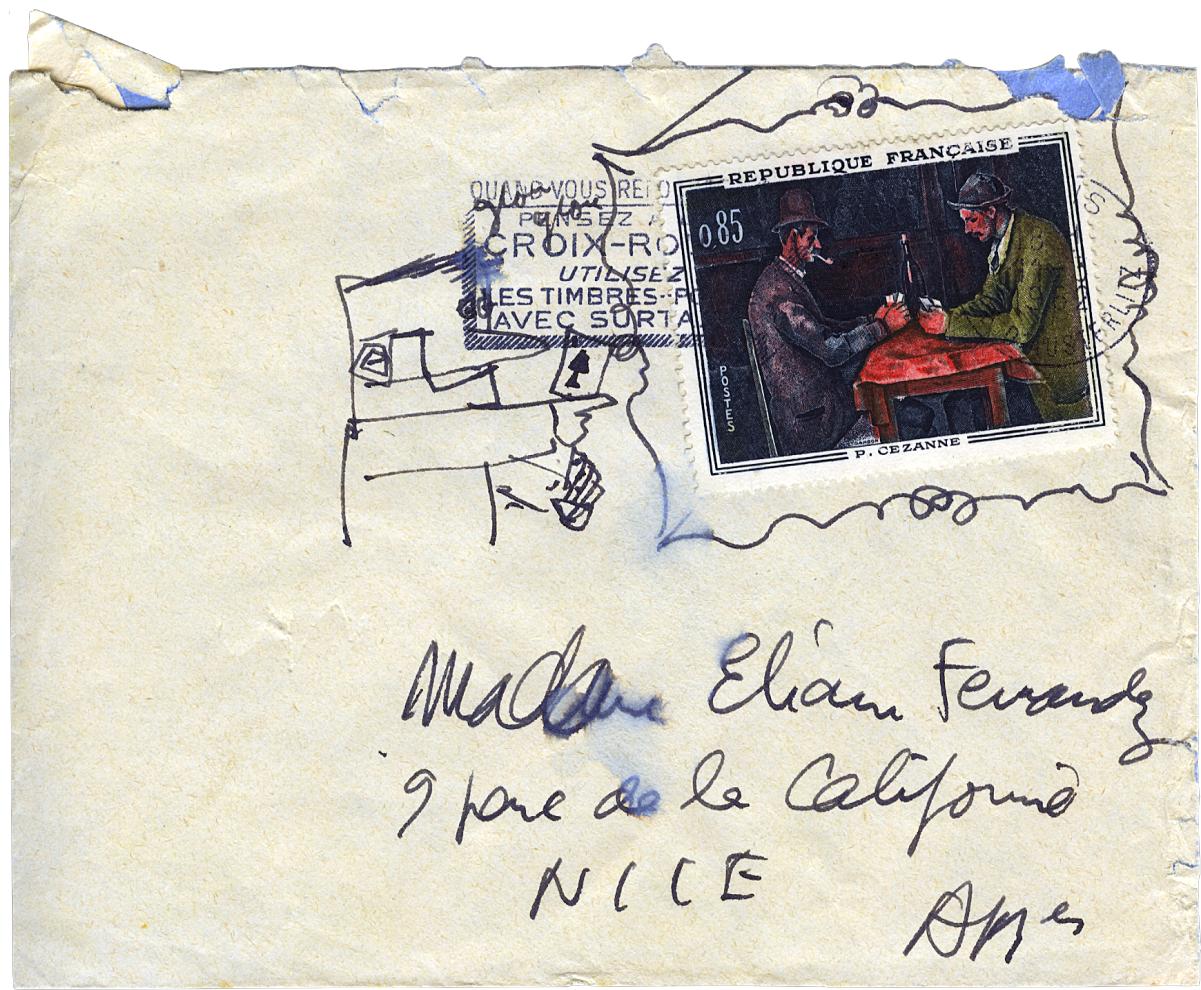 REPUBLIQUE FRANÇAISE
0.85
POSTES
P. CEZANNE
QUAND VOUS
PENSEZ A
CROIX-RO
UTILISEZ
LES TIMBRES-PO
AVEC SURTA
Madame Eliane Fernandez
9 parc de la Californie
NICE